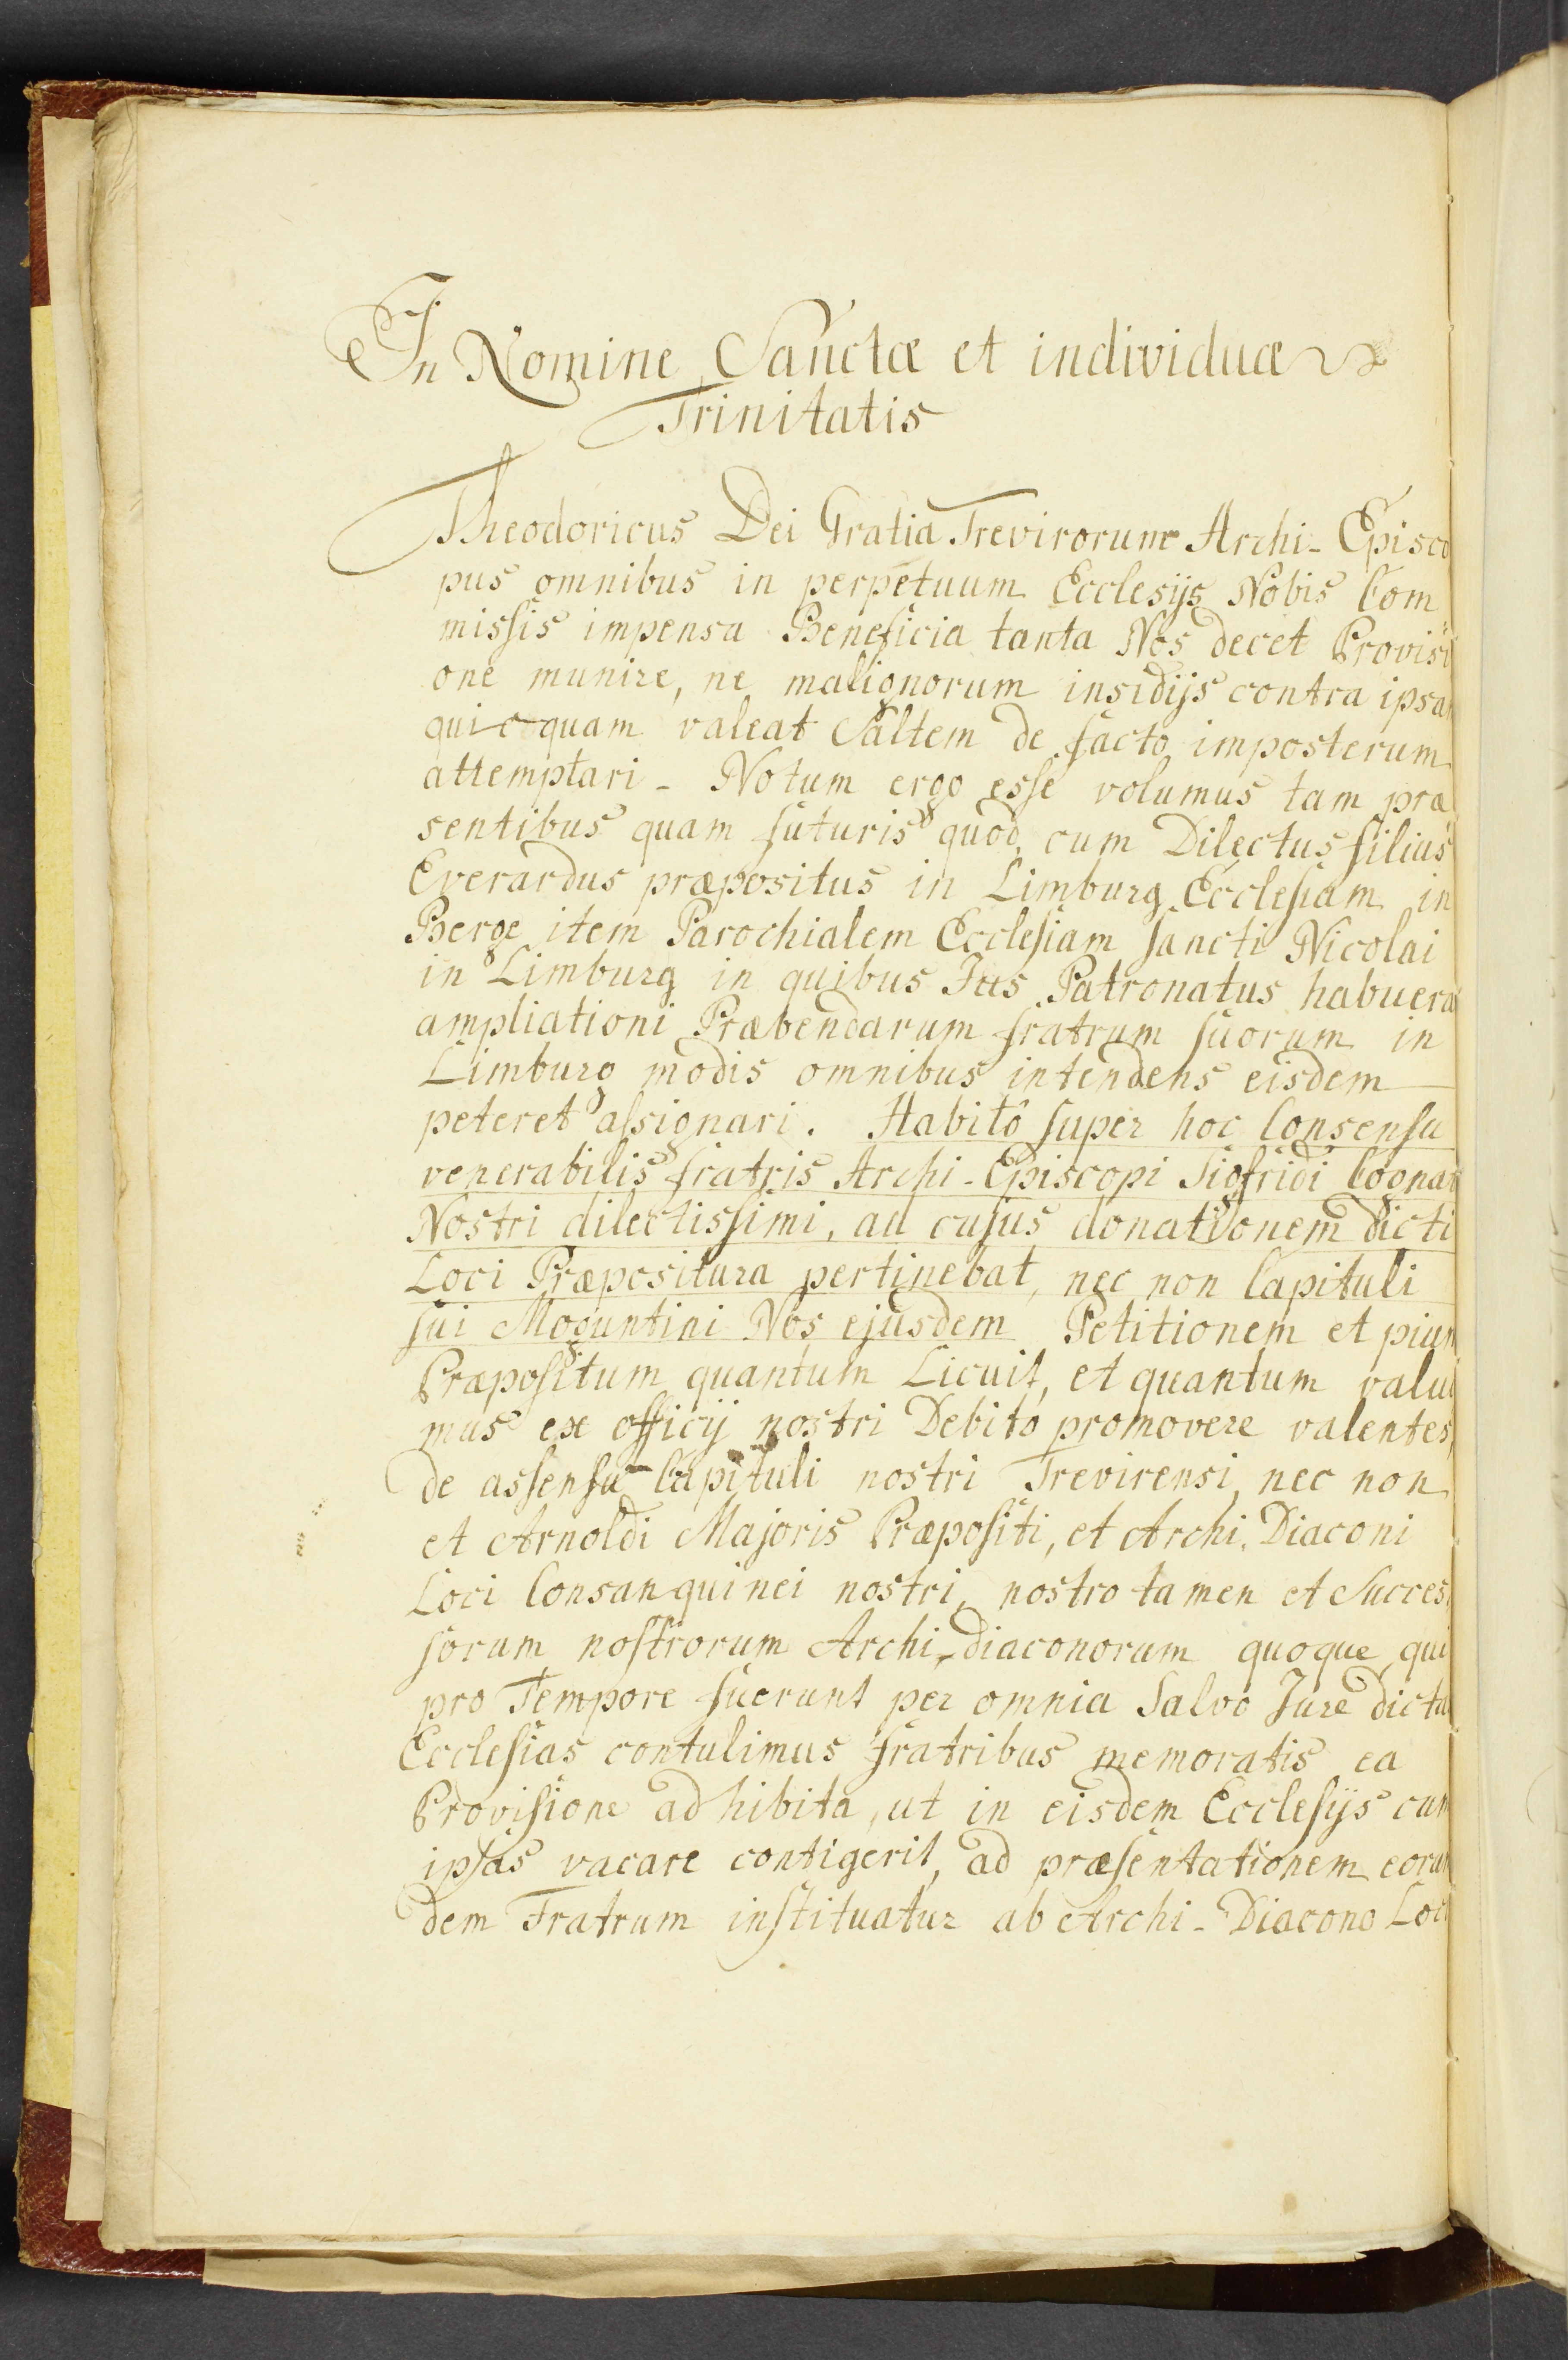 In Nomine Sanctæ et individuæ
Trinitatis
Theodoricus Dei Gratia Trevirorum Archi-Episco
pus omnibus in perpetuum Ecclesijs Nobis Com
missis impensa Beneficia tanta Nos decet Provisi
one munire, ne malignorum insidijs contra ipsa
quicquam valeat Saltem de facto imposterum
attemptari - Notum ergo esse volumus tam præ
sentibus quam futuris quod cum Dilectus filius
Everardus præpositus in Limburg Ecclesiam in
Berge item Parochialem Ecclesiam sancti Nicolai
in Limburg in quibus Jus Patronatus habuera
ampliationi Præbendarum fratrum suorum in
Limburg modis omnibus intendens eisdem
peteret assignari. Habitô super hoc Consensu
venerabilis fratris Archi-Episcopi Sigfridi Cognat
Nostri dilectissimi, ad cujus donationem dicti
Loci Præpositura pertinebat, nec non Capituli
sui Moguntini Nos ejusdem Petitionem et pium
Præpositum quantum Licuit, et quantum valui
mus ex officij nostri Debito promovere valentes,
de assensu Capituli nostri Trevirensi, nec non
et Arnoldi Majoris Præpositi, et Archi-Diaconi
Loci Consanquinei nostri, nostro tamen et Succes
sorum nostrorum Archi-diaconorum quoque qui
pro Tempore fuerunt per omnia Salvo Jure dicta
Ecclesias contulimus fratribus memoratis ea
Provisione adhibita, ut in eisdem Ecclesijs cum
ipsas vacare contigerit, ad præsentationem eorun
dem Fratrum instituatur ab Archi-Diacono Loci